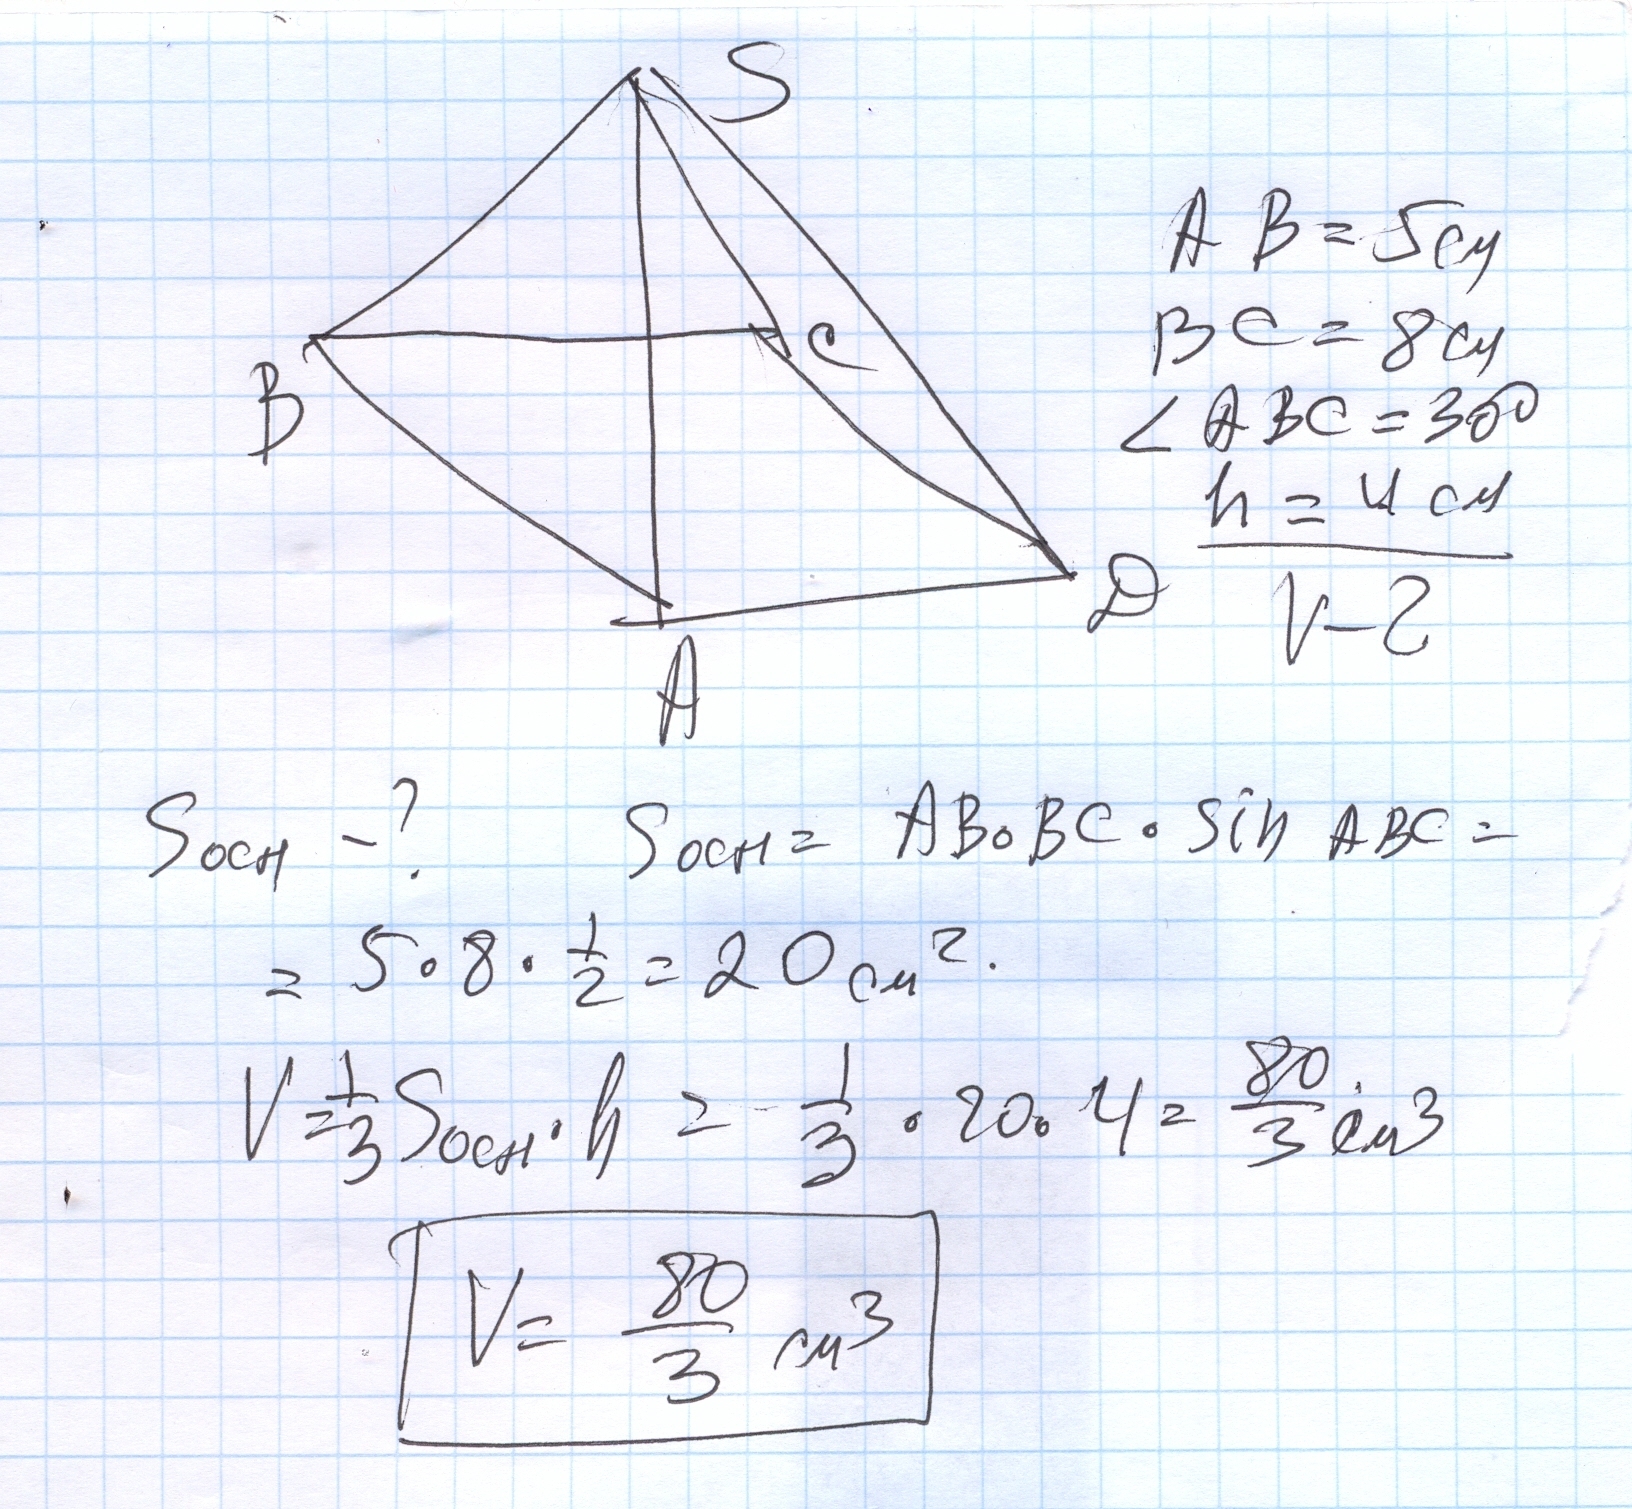 S
B
C
A
D
AB = 5см
BC = 8см
∠ABC = 30°
h = 4 см
V - ?
Sосн - ? Sосн = AB∘BC · sin ABC =
= 5·8·1/2 = 20 см².
V = 1/3 Sосн·h = 1/3 · 20·4 = 80/3 см³
V = 80/3 см³